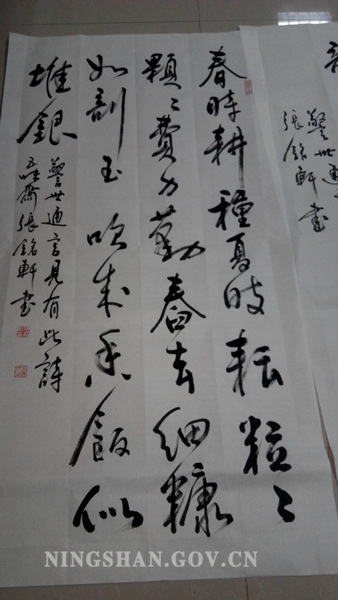 春時耕種夏時耘粒〻
顆〻費力勤舂去細糠
如剖玉炊成香飯似
堆銀
警世通言見有此詩
齋張銘軒書
警世通
張銘軒書
NINGSHAN.GOV.CN